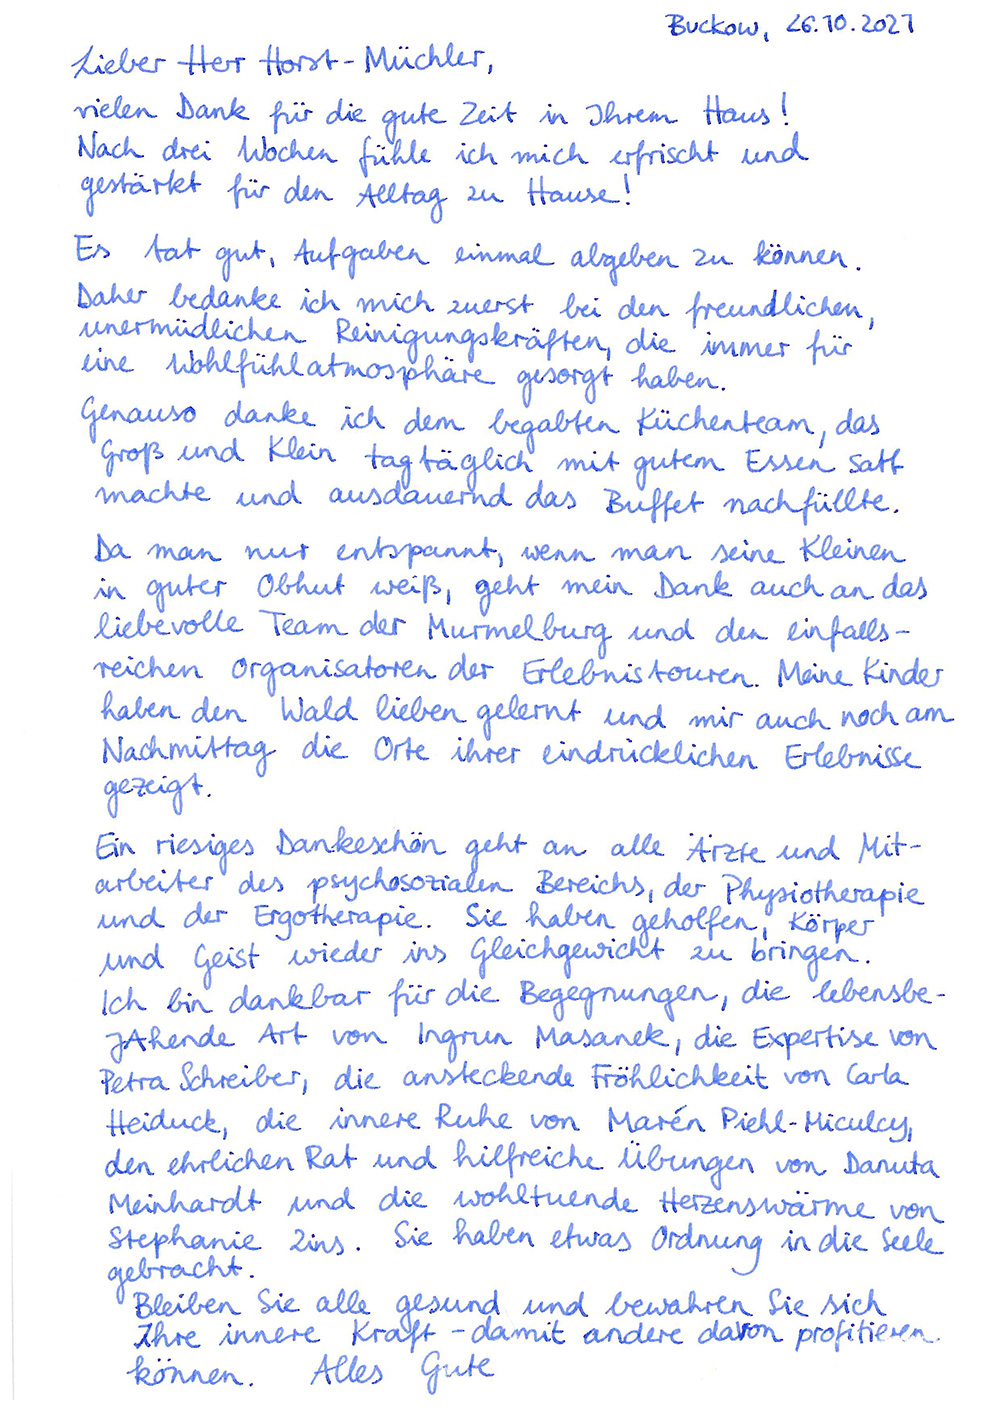 Buckow, 26.10.2021
Lieber Herr Horst-Müchler,
vielen Dank für die gute Zeit in Ihrem Haus!
Nach drei Wochen fühle ich mich erfrischt und
gestärkt für den Alltag zu Hause!
Es tat gut, Aufgaben einmal abgeben zu können.
Daher bedanke ich mich zuerst bei den freundlichen,
unermüdlichen Reinigungskräften, die immer für
eine Wohlfühlatmosphäre gesorgt haben.
Genauso danke ich dem begabten Küchenteam, das
Groß und Klein tagtäglich mit gutem Essen satt
machte und ausdauernd das Buffet nachfüllte.
Da man nur entspannt, wenn man seine Kleinen
in guter Obhut weiß, geht mein Dank auch an das
liebevolle Team der Murmelburg und den einfalls-
reichen Organisatoren der Erlebnistouren. Meine Kinder
haben den Wald lieben gelernt und mir auch noch am
Nachmittag die Orte ihrer eindrücklichen Erlebnisse
gezeigt.
Ein riesiges Dankeschön geht an alle Ärzte und Mit-
arbeiter des psychosozialen Bereichs, der Physiotherapie
und der Ergotherapie. Sie haben geholfen, Körper
und Geist wieder ins Gleichgewicht zu bringen.
Ich bin dankbar für die Begegnungen, die lebensbe-
jAhende Art von Ingrun Masanek, die Expertise von
Petra Schreiber, die ansteckende Fröhlichkeit von Carla
Heiduck, die innere Ruhe von Marén Piehl-Miculcy,
den ehrlichen Rat und hilfreiche Übungen von Danuta
Meinhardt und die wohltuende Herzenswärme von
Stephanie Zins. Sie haben etwas Ordnung in die Seele
gebracht.
Bleiben Sie alle gesund und bewahren Sie sich
Ihre innere Kraft - damit andere davon profitieren
können. Alles Gute